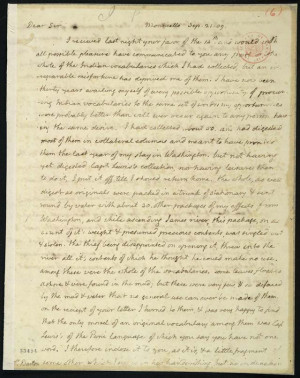 Dear Sir, Monticello Sep. 21. 09
I received last night your favor of the 14th and would with
all possible pleasure have communicated to you any part or the
whole of the Indian vocabularies which I had collected, but an
irreparable misfortune has deprived me of them. I have now been
thirty years availing myself of every possible opportunity of procur-
ing Indian vocabularies to the same set of words: my opportunities
were probably better than will ever occur again to any person having
the same desire. I had collected about 50. and had digested
most of them in collateral columns and meant to have printed
them the last year of my stay in Washington. but not having
yet digested Capt Lewis's collection, nor having leisure then
to do it, I put it off till I should return home. the whole, as well
digest as originals were packed in a trunk of stationary & sent
round by water with about 30. other packages of my effects from
Washington, and while ascending James river, this package, on
account of it's weight & presumed precious contents was singled out
& stolen. the thief being disappointed on opening it, threw into the
river all it's contents of which he thought he could make no use.
among these were the whole of the vocabularies. some leaves floated
ashore & were found in the mud; but these were very few, & so defaced
by the mud & water that no general use can ever be made of them.
on the receipt of your letter I turned to them, & was very happy to find
that the only morsel of an original vocabulary among them was Capt
Lewis's of the Pani language of which you say you have not one
word. I therefore inclose it to you, as it is, & a little fragment